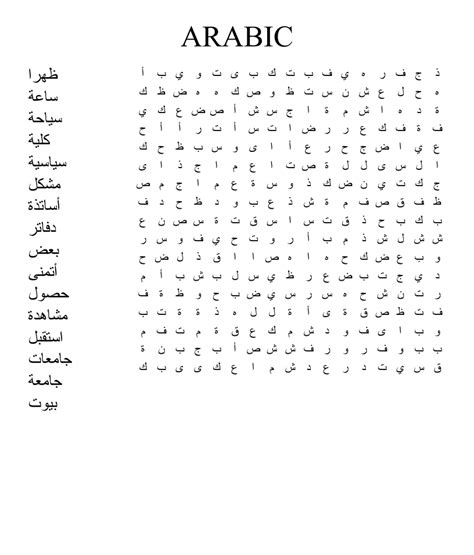 ARABIC
ظهرا
ساعة
سياحة
كلية
سياسية
مشكل
أساتذة
دفاتر
بعض
أتمنى
حصول
مشاهدة
استقبل
جامعات
جامعة
بيوت
ذ ج ف ر ه ي ف ب ت ك ب ى ت و ي ب أ
ه ح ل ع ش ن س ت ظ و ص ك ه ه ض ظ ك
ة د ه ا ش م ة ا ج س ش أ ص ض ع ك ي
ف ة ف ك ع ر ر ض ا ت س أ ت ر أ أ ح
ع ي ا ض ج ح ر ع أ ا ى و س ب ظ ح ك
ا ل س ي ل ل ة ص ت ا ع م ا ج ذ ا ى
ج ك ت ي ن ض ك ذ و س ة ع م ا ج م ص
ظ ف ق ص ف م ة ش ذ ع ب و د ظ ح د ف
ب ك ب ح ذ ق ت س ا س ق ت ة س ص ن ع
ش ش ل ش ذ م ب أ ر و ت ح ي ف و س ر
و ب ع ض ك ح ه ا ه ص ا ا ق ق ذ ل ض ح
د ي ج ت ب ض ع ر ظ ي س ل ب ش ب أ م
ر ت ن ش ح ه س ر س ي ض ب ح و ظ ة ف
ف ت ظ ص ق ة ى أ ة ل ل ه ذ ة ة ت ب
و ب ا ى ف و د ش م ك ع ق ة م ت ف م
ب ب و ف ر و ر ف ش ش ص أ ب ج ب ن ة
ق س ي ت د ر ع د ش م ا ع ك ى ى ب ك